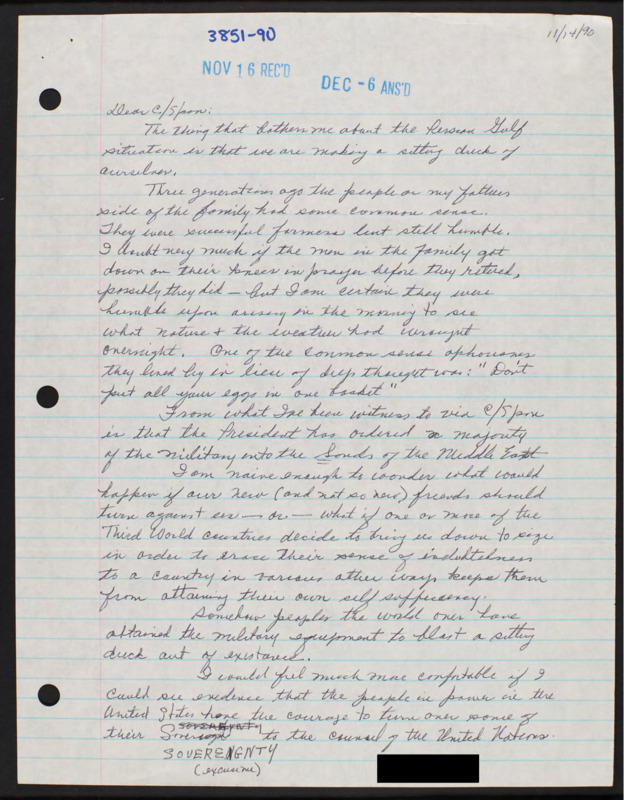 3851-90
11/14/90
NOV 16 REC'D
DEC -6 ANS'D
Dear C/Span:
The thing that bothers me about the Persian Gulf
situation is that we are making a sitting duck of
ourselves.
Three generations ago the people on my fathers
side of the family had some common sense.
They were successful farmers but still humble.
I doubt very much if the men in the family got
down on their knees in prayer before they retired,
possibly they did — but I am certain they were
humble upon arising in the morning to see
what nature & the weather had wrought
overnight. One of the common sense
they lived by in lieu of deep thought was: "Don't
put all your eggs in one basket"
From what I've been witness to via C/Span
is that the President has ordered a majority
of the military into the Sands of the Middle East
I am naive enough to wonder what would
happen if our new (and not so new) friends should
turn against us — or — what if one or more of the
Third World countries decide to bring us down to size
in order to erase their sense of indebtedness
to a country in various other ways keeps them
from attaining their own self
Somehow peoples the world over have
attained the military equipment to blast a sitting
duck out of
I would feel much more comfortable if I
could see evidence that the people in power in the
United States have the courage to turn over some of
their to the counsel of the United Nations.
SOVERENGNTY
(excuse me)